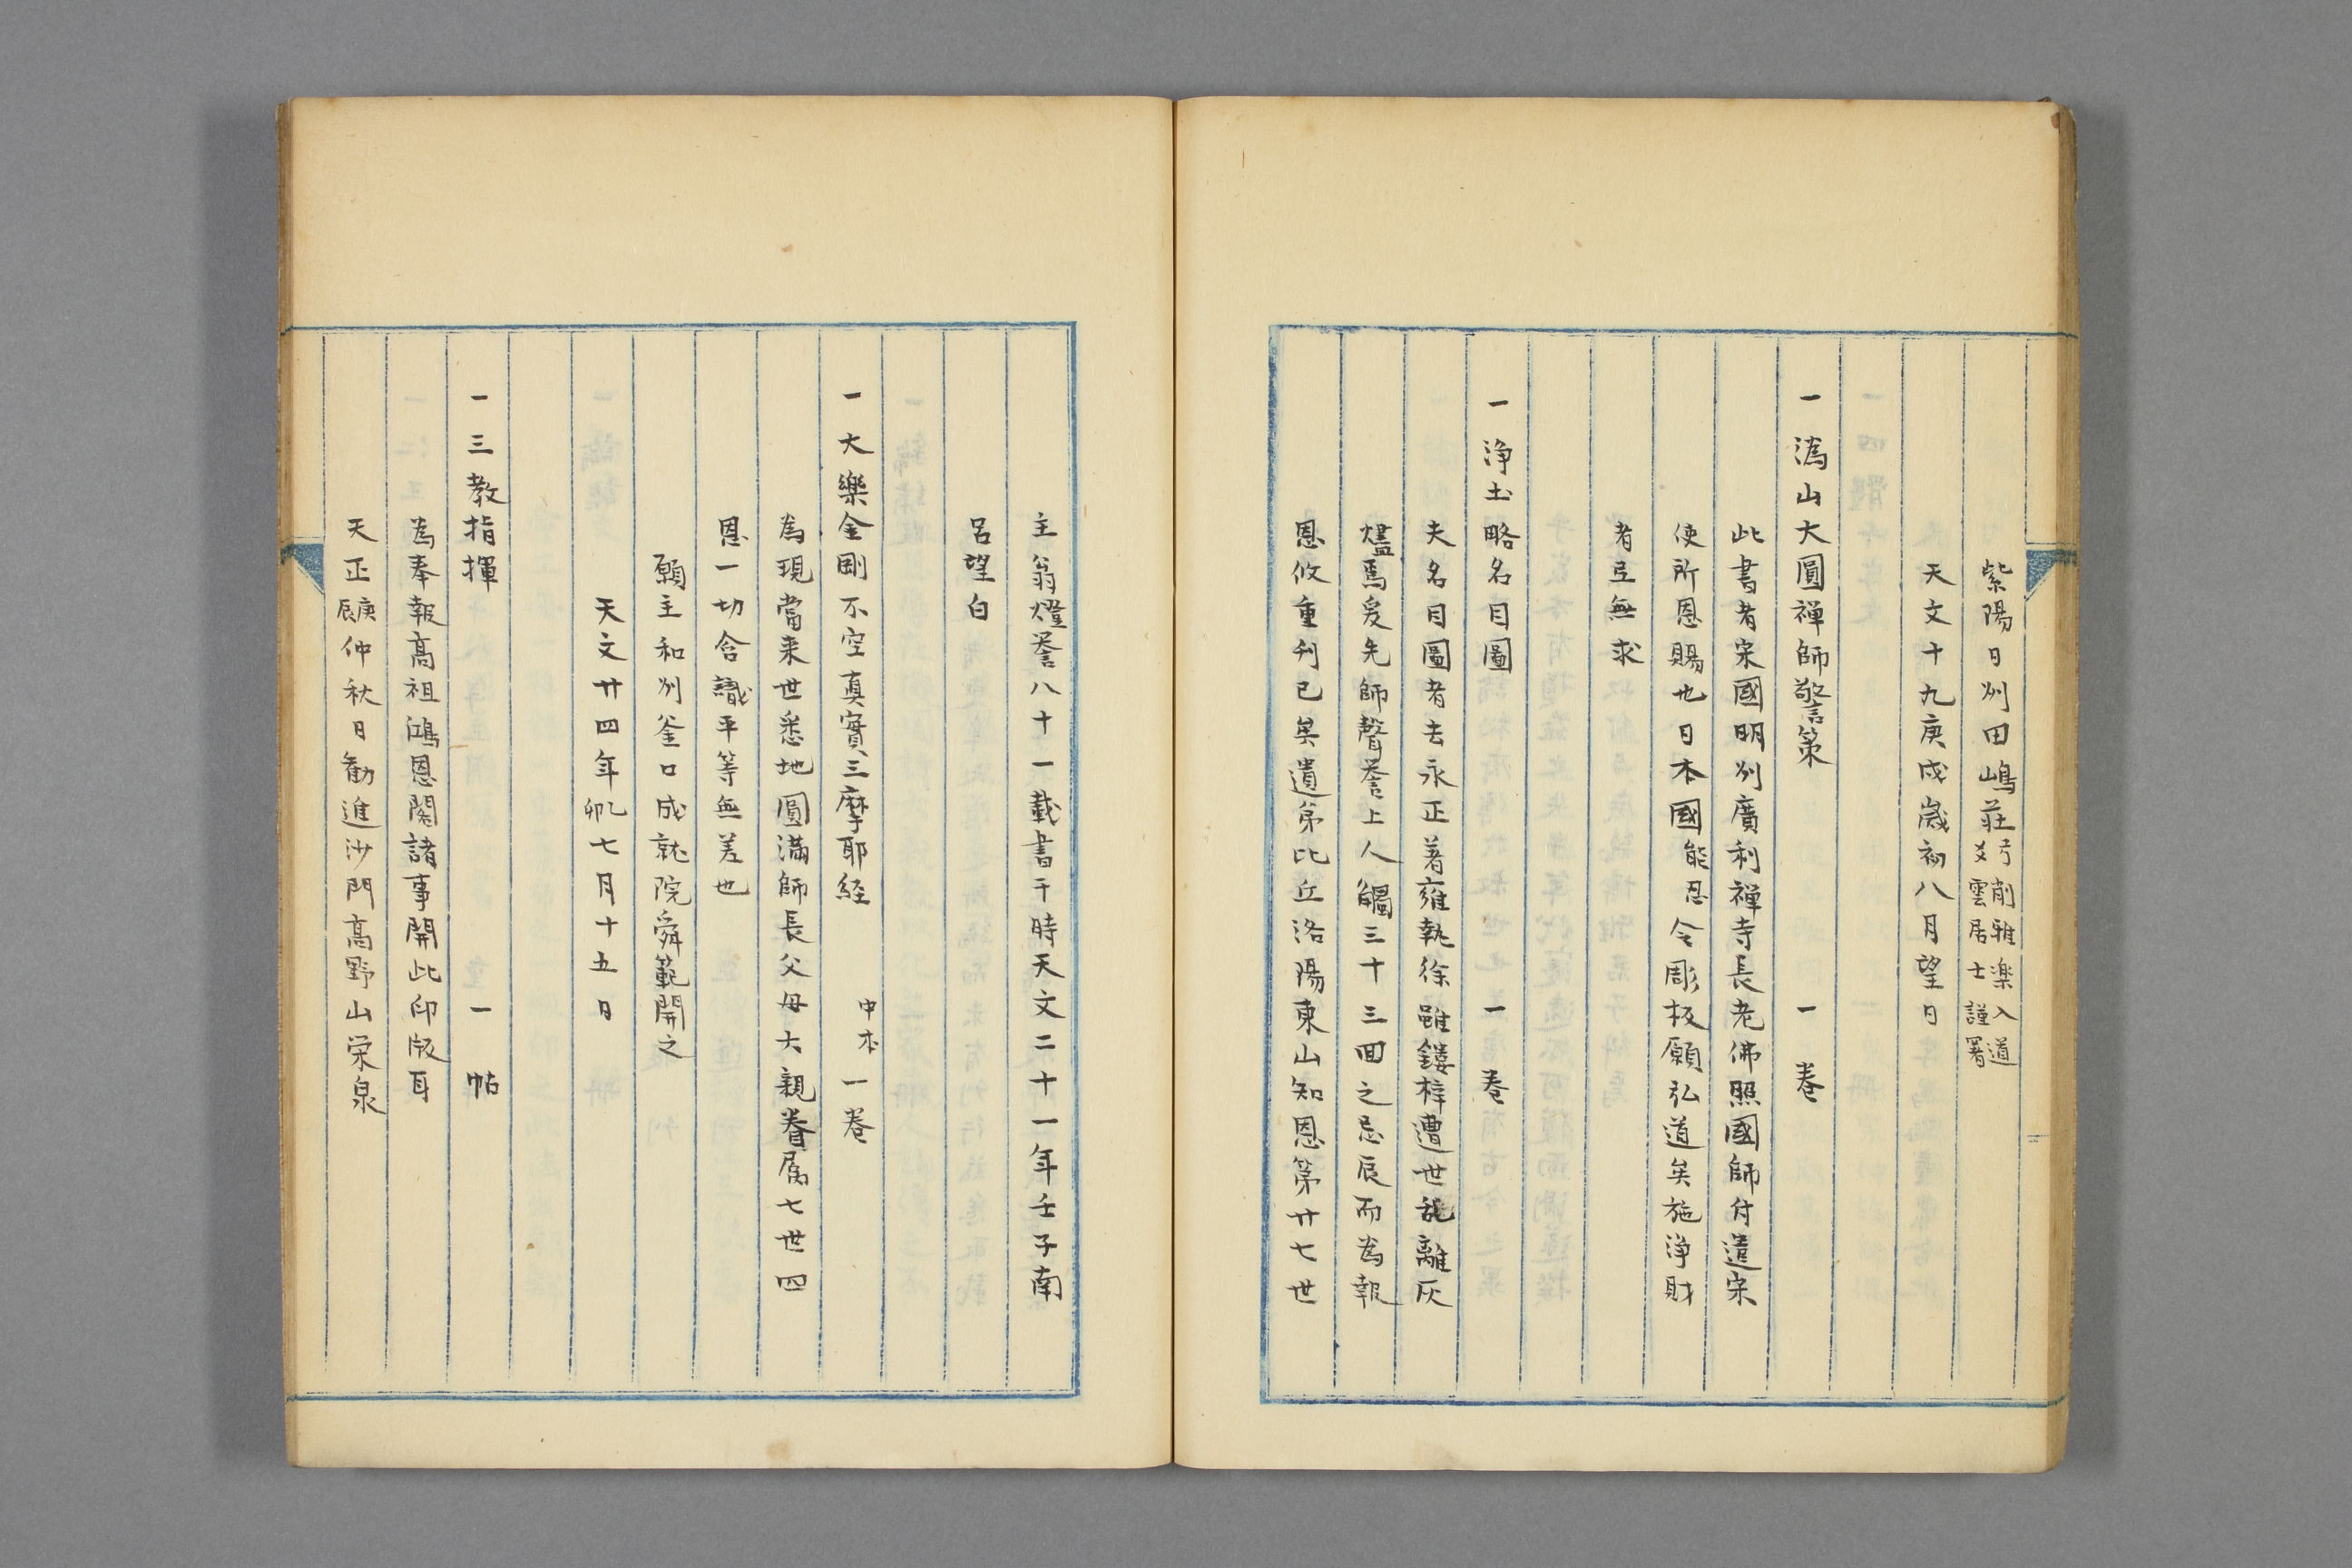 紫陽日州田嶋荘兮削雅楽入道
爻雲居士謹署
天文十九庚戌歳初八月望日
一 潙山大圓禅師警策 一巻
此書者宋國明州廣利禅寺長老佛照國師付遣宋
使所恩賜也日本國能忍令彫板願弘道矣施浄財
者弖無求
一 浄土略名目圖 一巻
夫名目圖者去永正著雍執徐雖鏤梓遭世乱離灰
燼焉爰先師聲誉上人觸三十三回之忌辰而為報
恩攸重刋已矣遺弟比丘洛陽東山知恩第廿七世
主翁燈誉八十一載書于時天文二十一年壬子南
呂望白
一 大樂金剛不空真實三摩耶経 中本 一巻
為現當来世悉地圓満師長父母大親眷属七世四
恩一切含識平等無差也
願主和州釜口成就院舜範開之
天文廿四年乙卯七月十五日
一 三教指揮 一帖
為奉報高祖鴻恩閣諸事開此印版耳
天正庚辰仲秋日勧進沙門高野山栄泉